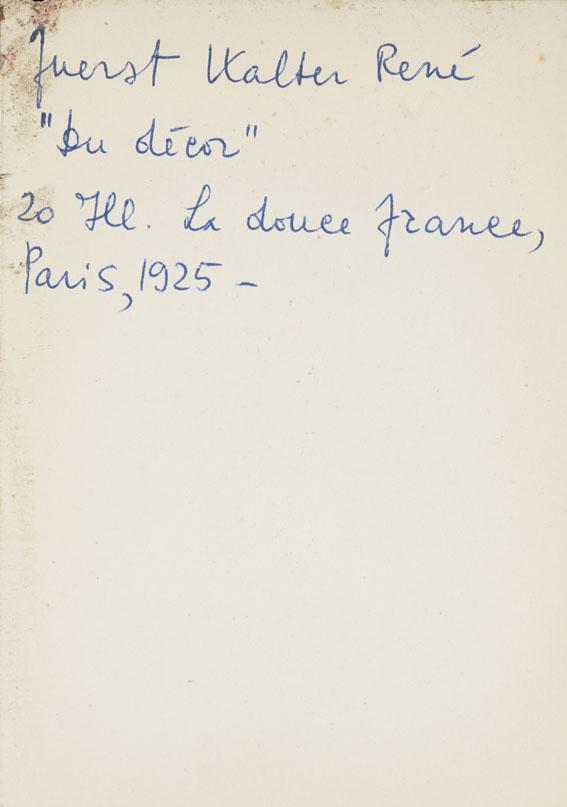 Fuerst Walter René
"Du décor"
20 Ill. La douce france,
Paris, 1925 -